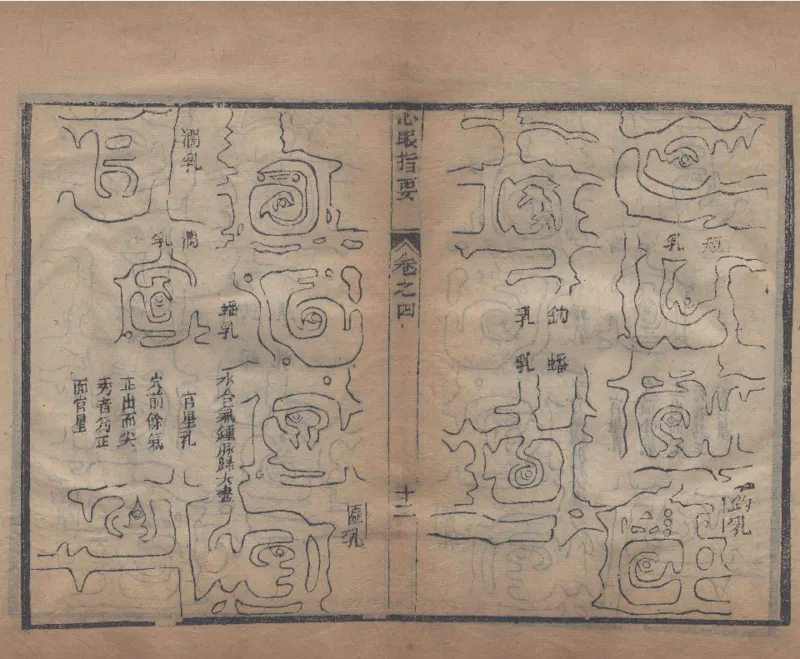 短乳
鈎乳
鈎乳
蟠乳
心眼指要
卷之四
十二
匾乳
濶乳
濶乳
蟠乳
水合氣鍾脉歸大盡
官星乳
穴前餘氣
正出而尖
秀者為正
面官星